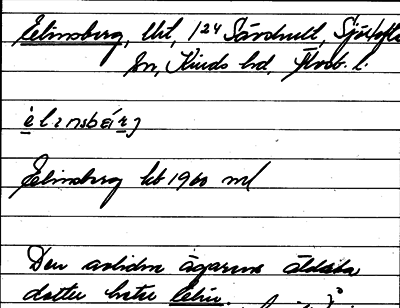 Elinsberg, lht, 1²⁴ Särshult, Sjötofta
sn, Kinds hd, Älvsb. l.
elinsbärj
Elinsberg lht 1960 ml
Den avlidne ägarens äldsta
dotter hette Elin.